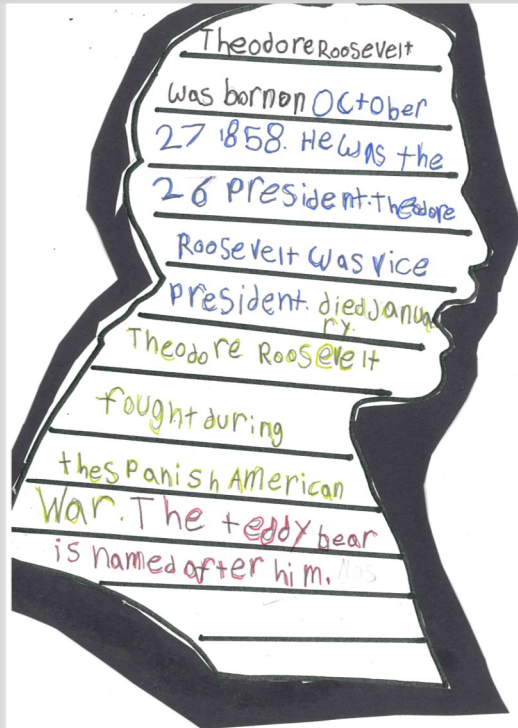 Theodore Roosevelt
was born on October
27 1858. He was the
26 president. Theodore
Roosevelt was vice
president. died Janua
ry.
Theodore Roosevelt
fought during
the spanish American
War. The teddy bear
is named after him.